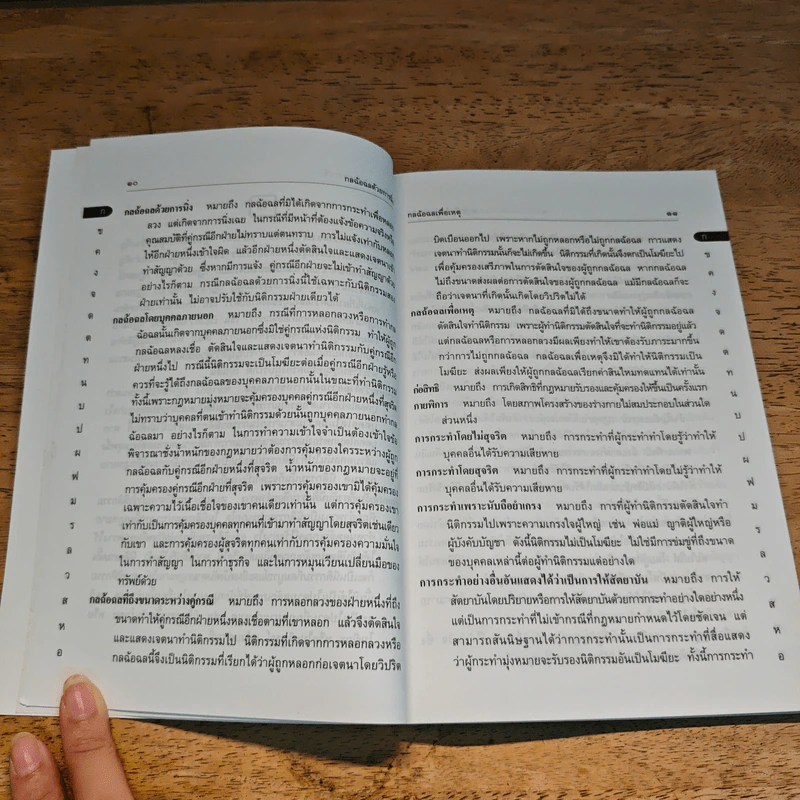 ๑๐
กลฉ้อฉลด้วยการนิ่ง
ก
ข
ค
ง
จ
ต
ท
น
บ
ป
ผ
ฟ
ม
ร
ล
ว
ส
ห
อ
กลฉ้อฉลด้วยการนิ่ง หมายถึง กลฉ้อฉลที่มิได้เกิดจากการกระทำเพื่อหลอก
ลวง แต่เกิดจากการนิ่งเฉย ในกรณีที่มีหน้าที่ต้องแจ้งข้อความจริงหรือ
คุณสมบัติที่คู่กรณีอีกฝ่ายไม่ทราบแต่ตนทราบ การไม่แจ้งเท่ากับหลอก
ให้อีกฝ่ายหนึ่งเข้าใจผิด แล้วอีกฝ่ายหนึ่งตัดสินใจและแสดงเจตนาเข้า
ทำสัญญาด้วย ซึ่งหากมีการแจ้ง คู่กรณีอีกฝ่ายจะไม่เข้าทำสัญญาด้วย
อย่างไรก็ตาม กรณีกลฉ้อฉลด้วยการนิ่งนี้ใช้เฉพาะกับนิติกรรมสอง
ฝ่ายเท่านั้น ไม่อาจปรับใช้กับนิติกรรมฝ่ายเดียวได้
กลฉ้อฉลโดยบุคคลภายนอก หมายถึง กรณีที่การหลอกลวงหรือการทำกล
ฉ้อฉลนั้นเกิดจากบุคคลภายนอกซึ่งมิใช่คู่กรณีแห่งนิติกรรม ทำให้ผู้ถูก
กลฉ้อฉลหลงเชื่อ ตัดสินใจและแสดงเจตนาทำนิติกรรมกับคู่กรณีอีก
ฝ่ายหนึ่งไป กรณีนี้นิติกรรมจะเป็นโมฆียะต่อเมื่อคู่กรณีอีกฝ่ายรู้หรือ
ควรที่จะรู้ได้ถึงกลฉ้อฉลของบุคคลภายนอกนั้นในขณะที่ทำนิติกรรม
ทั้งนี้เพราะกฎหมายมุ่งหมายจะคุ้มครองบุคคลคู่กรณีอีกฝ่ายที่สุจริต
ไม่ทราบว่าบุคคลที่ตนเข้าทำนิติกรรมด้วยนั้นถูกบุคคลภายนอกทำกล
ฉ้อฉลมา อย่างไรก็ตาม ในการทำความเข้าใจจำเป็นต้องเข้าใจข้อ
พิจารณาชั่งน้ำหนักของกฎหมายว่าต้องการคุ้มครองใครระหว่างผู้ถูก
กลฉ้อฉลกับคู่กรณีอีกฝ่ายหนึ่งที่สุจริต น้ำหนักของกฎหมายจะอยู่ที่
การคุ้มครองคู่กรณีอีกฝ่ายที่สุจริต เพราะการคุ้มครองเขามิได้คุ้มครอง
เฉพาะความไว้เนื้อเชื่อใจของเขาคนเดียวเท่านั้น แต่การคุ้มครองเขา
เท่ากับเป็นการคุ้มครองบุคคลทุกคนที่เข้ามาทำสัญญาโดยสุจริตเช่นเดียว
กับเขา และการคุ้มครองผู้สุจริตทุกคนเท่ากับการคุ้มครองความมั่นใจ
ในการทำสัญญา ในการทำธุรกิจ และในการหมุนเวียนเปลี่ยนมือของ
ทรัพย์ด้วย
กลฉ้อฉลที่ถึงขนาดระหว่างคู่กรณี หมายถึง การหลอกลวงของฝ่ายหนึ่งที่ถึง
ขนาดทำให้คู่กรณีอีกฝ่ายหนึ่งหลงเชื่อตามที่เขาหลอก แล้วจึงตัดสินใจ
และแสดงเจตนาทำนิติกรรมไป นิติกรรมที่เกิดจากการหลอกลวงหรือ
กลฉ้อฉลนี้จึงเป็นนิติกรรมที่เรียกได้ว่าผู้ถูกหลอกก่อเจตนาโดยวิปริต
กลฉ้อฉลเพื่อเหตุ
๑๑
บิดเบือนออกไป เพราะหากไม่ถูกหลอกหรือไม่ถูกกลฉ้อฉล การแสดง
เจตนาทำนิติกรรมนั้นก็จะไม่เกิดขึ้น นิติกรรมที่เกิดขึ้นนี้จึงตกเป็นโมฆียะไป
เพื่อคุ้มครองเสรีภาพในการตัดสินใจของผู้ถูกกลฉ้อฉล หากกลฉ้อฉล
ไม่ถึงขนาดส่งผลต่อการตัดสินใจของผู้ถูกกลฉ้อฉล แม้มีกลฉ้อฉลก็จะ
ถือว่าเจตนาที่เกิดนั้นเกิดโดยวิปริตไม่ได้
กลฉ้อฉลเพื่อเหตุ หมายถึง กลฉ้อฉลที่มิได้ถึงขนาดทำให้ผู้ถูกกลฉ้อฉล
ตัดสินใจทำนิติกรรม เพราะผู้ทำนิติกรรมตัดสินใจที่จะทำนิติกรรมอยู่แล้ว
แต่กลฉ้อฉลหรือการหลอกลวงมีผลเพียงทำให้เขาต้องรับภาระมากขึ้น
กว่าการไม่ถูกกลฉ้อฉล กลฉ้อฉลเพื่อเหตุจึงมิได้ทำให้นิติกรรมเป็น
โมฆียะ ส่งผลเพียงให้ผู้ถูกกลฉ้อฉลเรียกค่าสินไหมทดแทนได้เท่านั้น
ก่อสิทธิ หมายถึง การเกิดสิทธิที่กฎหมายรับรองและคุ้มครองให้ขึ้นเป็นครั้งแรก
กายพิการ หมายถึง โดยสภาพโครงสร้างของร่างกายไม่สมประกอบในส่วนใด
ส่วนหนึ่ง
การกระทำโดยไม่สุจริต หมายถึง การกระทำที่ผู้กระทำทำโดยรู้ว่าทำให้
บุคคลอื่นได้รับความเสียหาย
การกระทำโดยสุจริต หมายถึง การกระทำที่ผู้กระทำทำโดยไม่รู้ว่าทำให้
บุคคลอื่นได้รับความเสียหาย
การกระทำเพราะนับถือยำเกรง หมายถึง การที่ผู้ทำนิติกรรมตัดสินใจทำ
นิติกรรมไปเพราะความเกรงใจผู้ใหญ่ เช่น พ่อแม่ ญาติผู้ใหญ่หรือ
ผู้บังคับบัญชา ดังนี้นิติกรรมไม่เป็นโมฆียะ ไม่ใช่มีการข่มขู่ที่ถึงขนาด
ของบุคคลเหล่านี้ต่อผู้ทำนิติกรรมแต่อย่างใด
การกระทำอย่างอื่นอันแสดงได้ว่าเป็นการให้สัตยาบัน หมายถึง การให้
สัตยาบันโดยปริยายหรือการให้สัตยาบันด้วยการกระทำอย่างใดอย่างหนึ่ง
แต่เป็นการกระทำที่ไม่เข้ากรณีที่กฎหมายกำหนดไว้โดยชัดเจน แต่
สามารถสันนิษฐานได้ว่าการกระทำนั้นเป็นการกระทำที่สื่อแสดง
ว่าผู้กระทำมุ่งหมายจะรับรองนิติกรรมอันเป็นโมฆียะ ทั้งนี้การกระทำ
ก
ข
ค
ง
จ
ต
ท
น
บ
ป
ผ
ฟ
ม
ร
ล
ว
ส
ห
อ